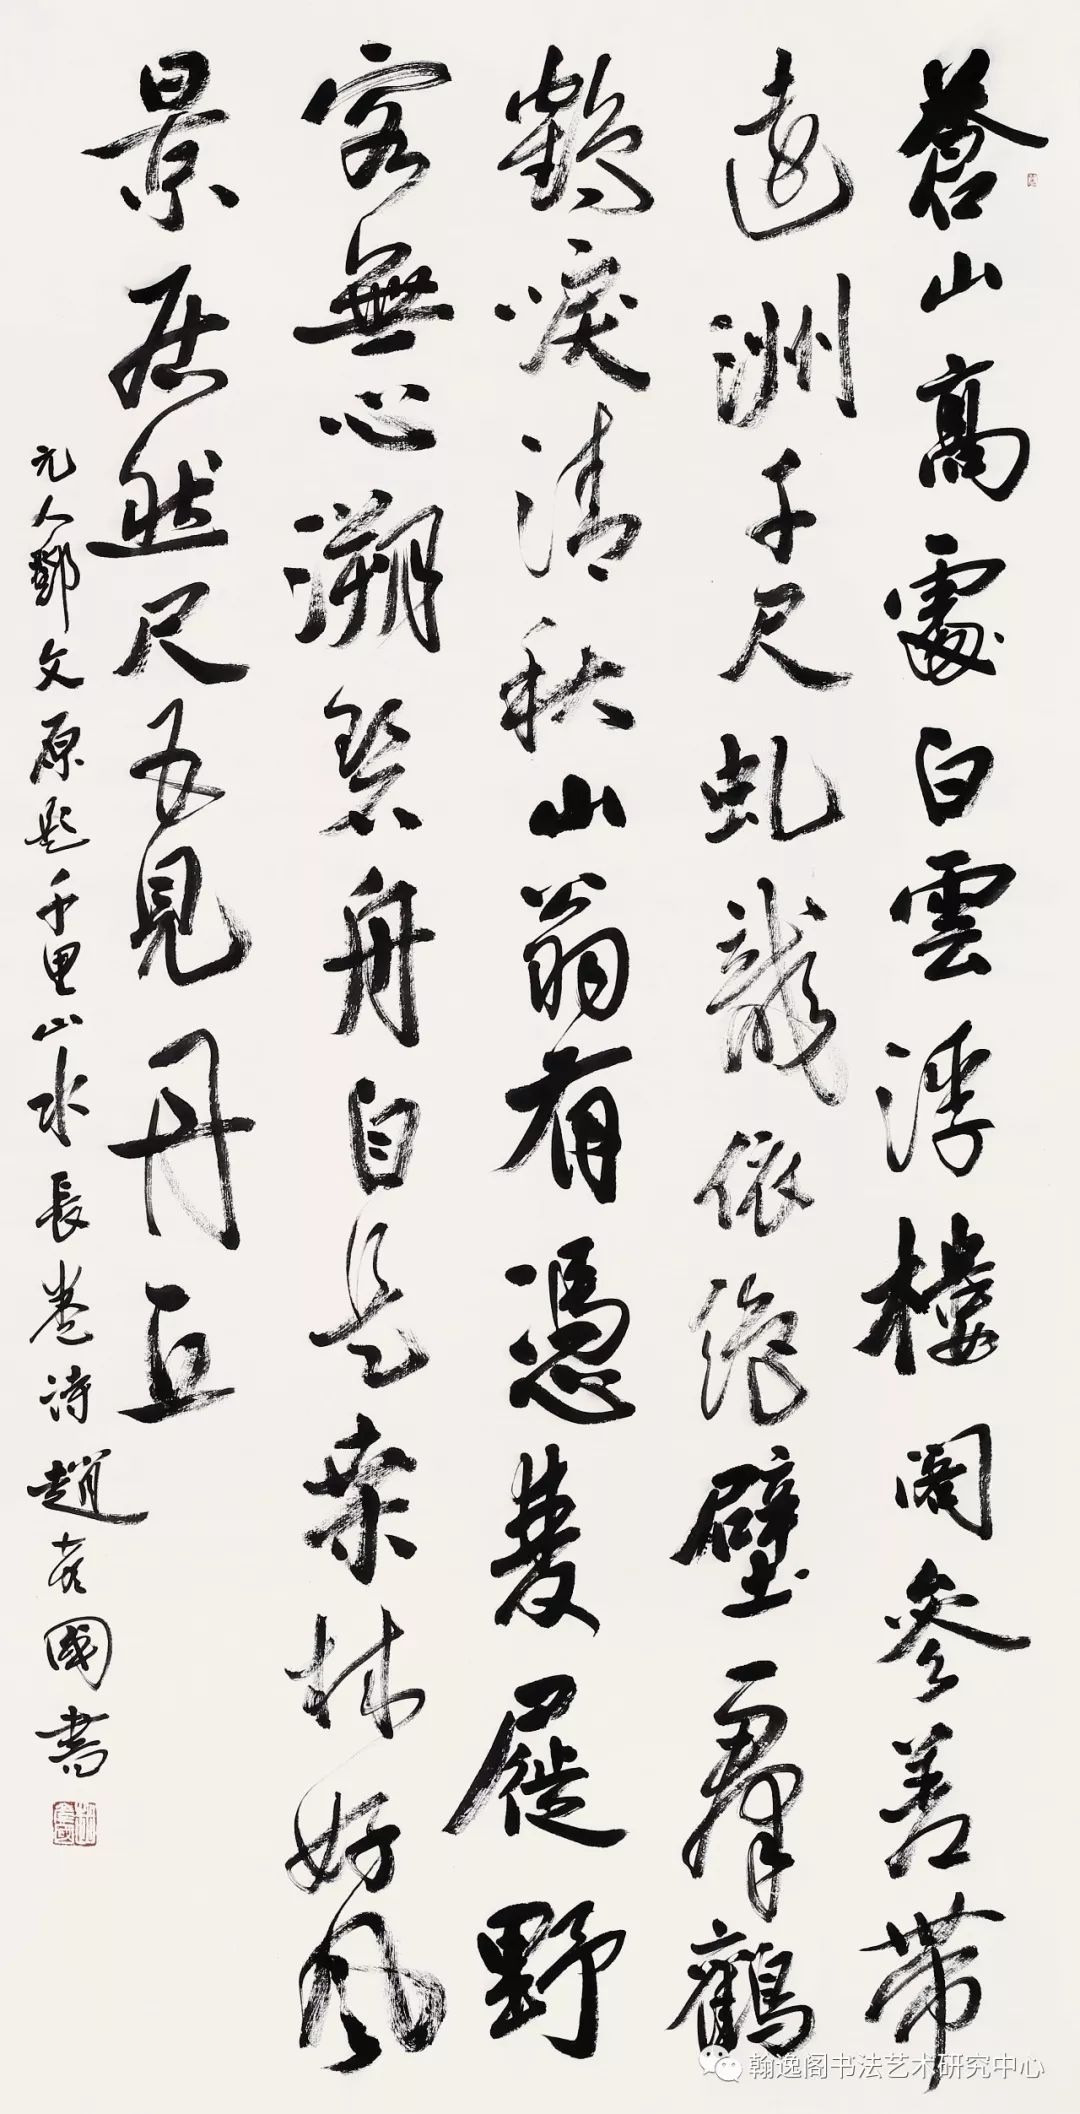 蒼山高處白雲浮樓閣參差帶
遠洲千尺虬龍依絕壁一羣鸛
鶴唳清秋山翁有憑雙屣野
客無心溯碧舟自是桑林好風
景居然尺五見丹丘
元人鄧文原題千里山水長卷詩 趙國書
翰逸阁书法艺术研究中心